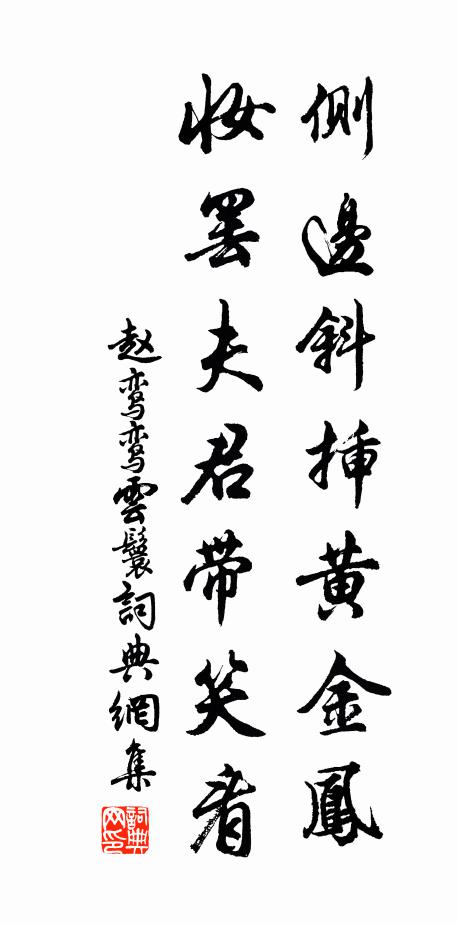 側邊斜挿黃金鳳
妝罷夫君带笑看
赵鸾鸾雲鬟詞典網集
詞典网印